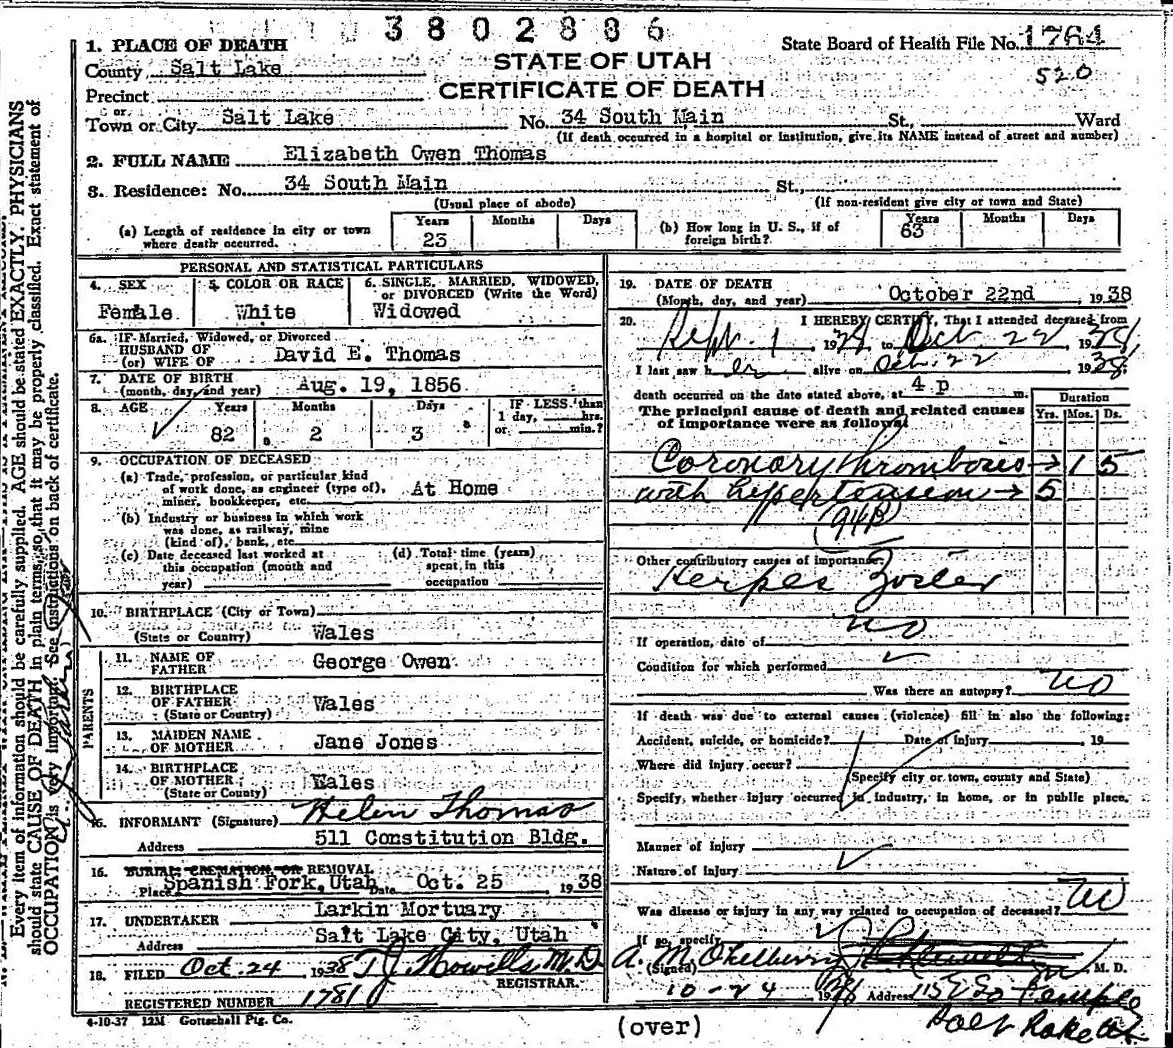 3802886
1. PLACE OF DEATH
State Board of Health File No. 1764
County Salt Lake
STATE OF UTAH
520
Precinct
CERTIFICATE OF DEATH
or
Town or City Salt Lake No. 34 South Main St., Ward
(If death occurred in a hospital or institution, give its NAME instead of street and number)
2. FULL NAME Elizabeth Owen Thomas
3. Residence: No. 34 South Main St.,
(Usual place of abode) (If non-resident give city or town and State)
(a) Length of residence in city or town where death occurred. Years 23 Months Days
(b) How long in U. S., if of foreign birth? Years 63 Months Days
PERSONAL AND STATISTICAL PARTICULARS
4. SEX 5. COLOR OR RACE 6. SINGLE, MARRIED, WIDOWED,
or DIVORCED (Write the Word)
Female White Widowed
6a. IF Married, Widowed, or Divorced
HUSBAND OF
(or) WIFE OF David E. Thomas
7. DATE OF BIRTH
(month, day, and year) Aug. 19, 1856.
8. AGE Years Months Days IF LESS than
1 day, hrs.
or min.?
82 2 3
9. OCCUPATION OF DECEASED
(a) Trade, profession, or particular kind
of work done, as engineer (type of),
miner, bookkeeper, etc. At Home
(b) Industry or business in which work
was done, as railway, mine
(kind of), bank, etc.
(c) Date deceased last worked at
this occupation (month and
year)
(d) Total time (years)
spent in this
occupation
10. BIRTHPLACE (City or Town)
(State or Country) Wales
PARENTS
11. NAME OF
FATHER George Owen
12. BIRTHPLACE
OF FATHER
(State or Country) Wales
13. MAIDEN NAME
OF MOTHER Jane Jones
14. BIRTHPLACE
OF MOTHER
(State or Country) Wales
15. INFORMANT (Signature) Helen Thomas
Address 511 Constitution Bldg.
16. BURIAL, CREMATION, OR REMOVAL
Place Spanish Fork, Utah Date Oct. 25 1938
17. UNDERTAKER Larkin Mortuary
Address Salt Lake City, Utah
18. FILED Oct. 24 1938 T J Howells M.D.
REGISTRAR.
REGISTERED NUMBER 1781
4-10-37 12M Gottschall Ptg. Co.
19. DATE OF DEATH
(Month, day, and year) October 22nd, 1938
20. I HEREBY CERTIFY, That I attended deceased from
Sept. 1 1938, to Oct. 22, 1938,
I last saw her alive on Oct. 22 1938;
death occurred on the date stated above, at 4 p m.
The principal cause of death and related causes
of importance were as follows:
Duration
Yrs. Mos. Ds.
Coronary thrombosis → 1 5
with hypertension → 5
(94B)
Other contributory causes of importance:
Herpes Zoster
If operation, date of no
Condition for which performed
Was there an autopsy? no
If death was due to external causes (violence) fill in also the following:
Accident, suicide, or homicide? Date of injury , 19
Where did injury occur?
(Specify city or town, county and State)
Specify, whether injury occurred in industry, in home, or in public place.
Manner of injury
Nature of injury
Was disease or injury in any way related to occupation of deceased? no
If so, specify
(Signed) A. M. Okelberry M. D.
10-24 1938 Address 115 E So Temple
Salt Lake
(over)
Every item of information should be carefully supplied. AGE should be stated EXACTLY. PHYSICIANS
should state CAUSE OF DEATH in plain terms, so that it may be properly classified. Exact statement of
OCCUPATION is very important. See instructions on back of certificate.